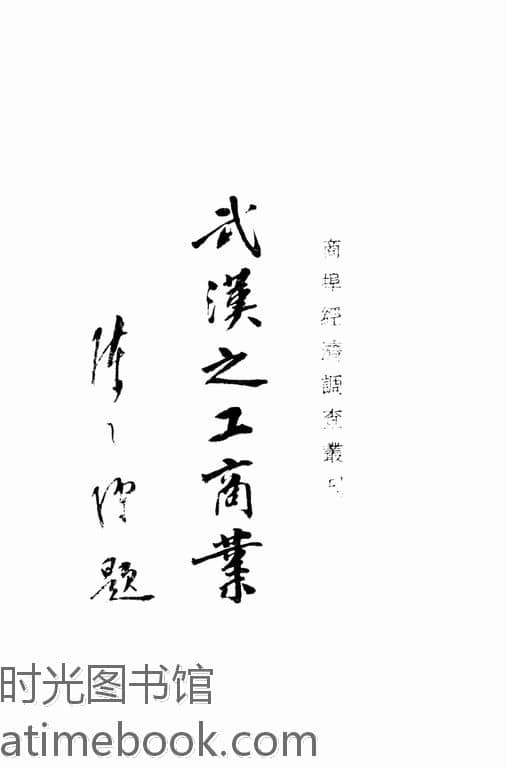 商埠經濟調查叢刊
武漢之工商業
題
时光图书馆
atimebook.com